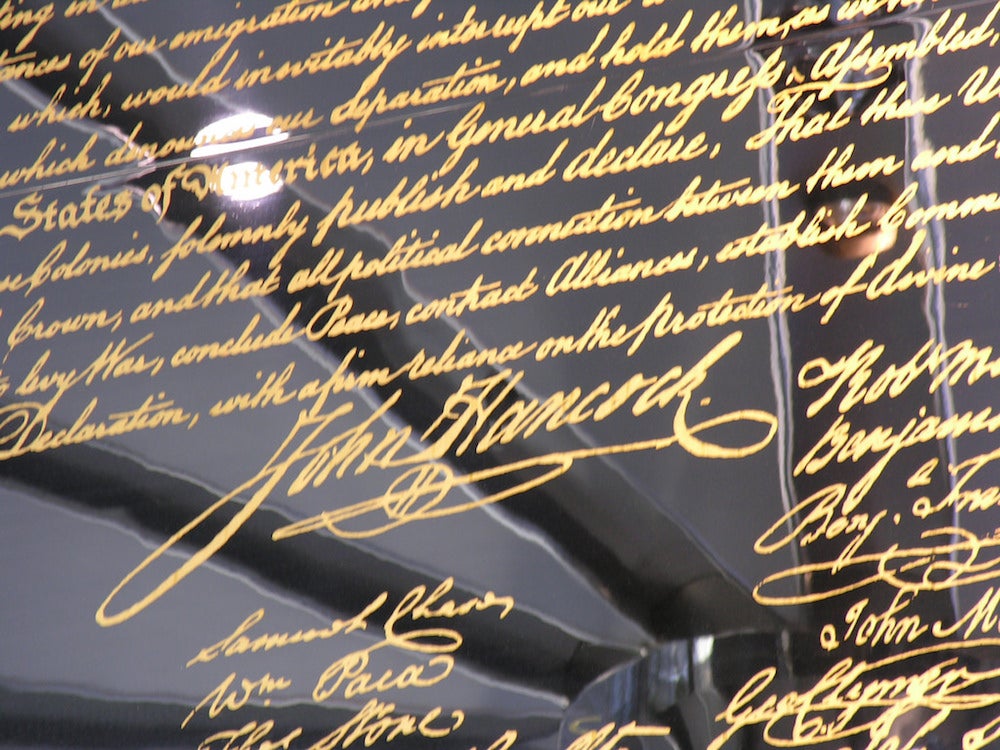 ing in
ances of our emigration an
which, would inevitably interrupt our
which denounces our Separation, and hold them, as we
States of America, in General Congress, Assembled,
se Colonies, solemnly publish and declare, That these U
Crown, and that all political connection between them and
levy War, conclude Peace, contract Alliances, establish Comm
Declaration, with a firm reliance on the protection of divine
John Hancock
Robt M
Benjami
Benj. Fra
John M
Geo Clymer
Samuel Chase
Wm. Paca
Thos Stone